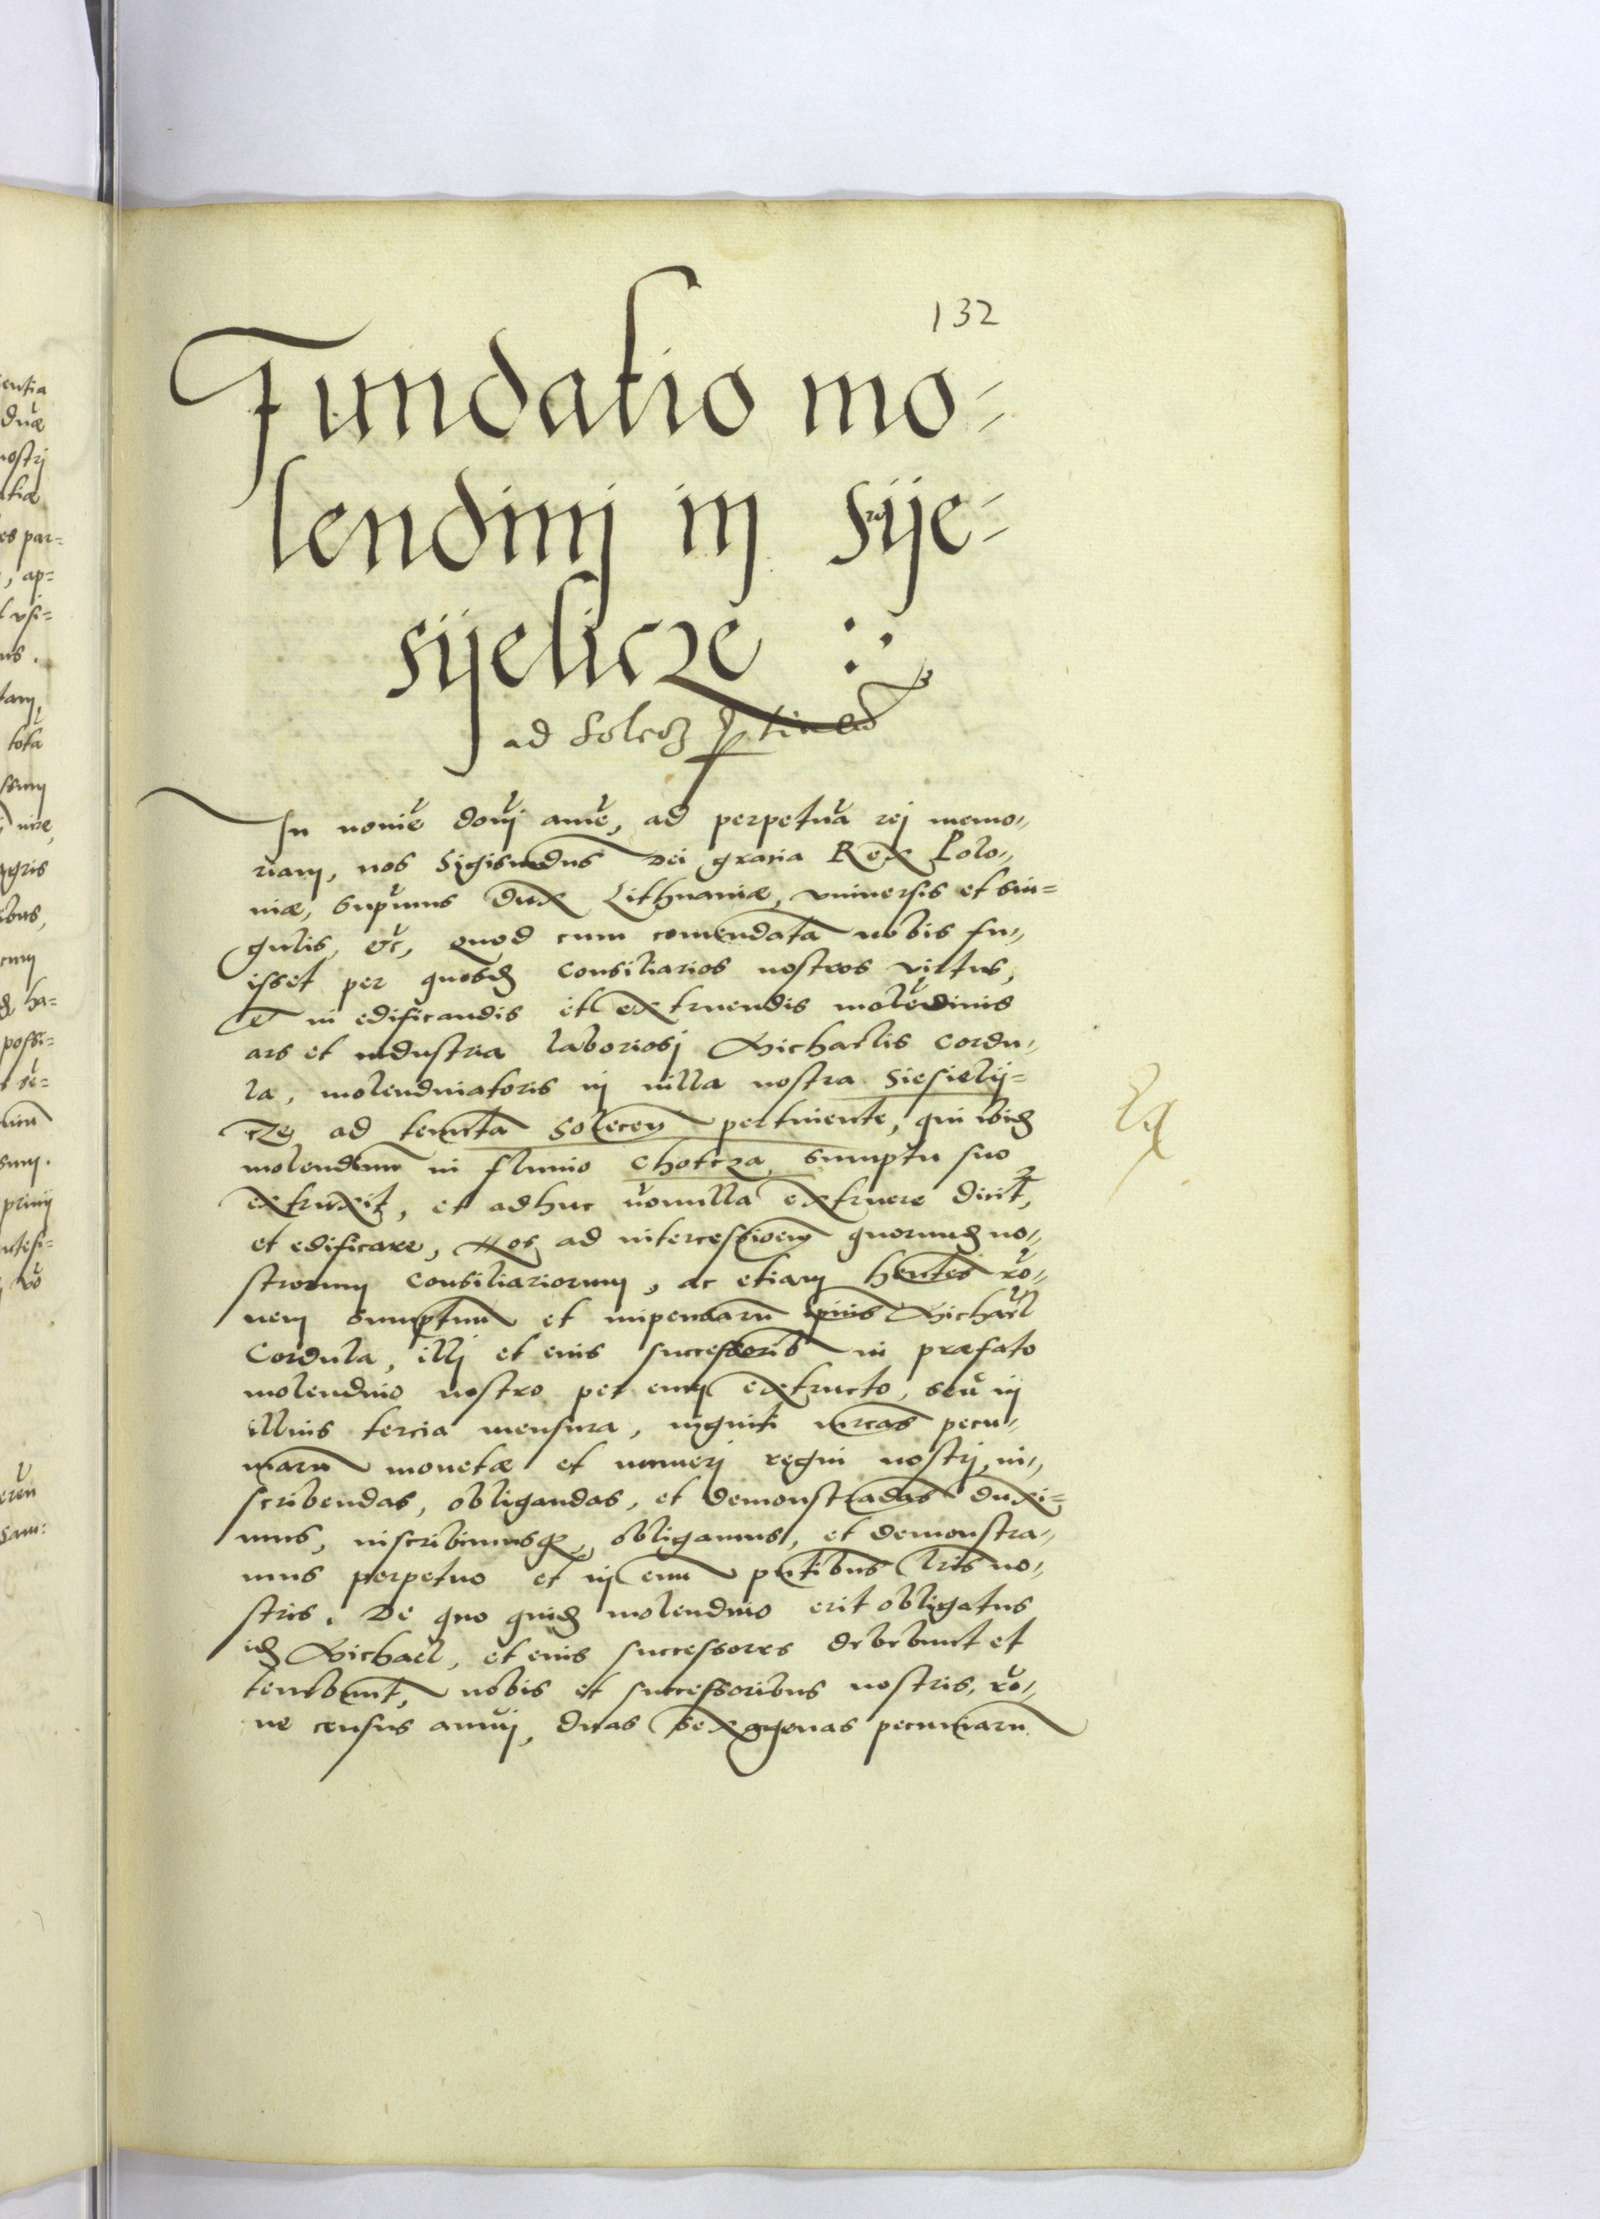 132
Fundatio mo-
lendinj in sije-
sijelicze
ad Solecz ptinen
In noie dnj ame, ad perpetua rej memo-
riam, nos Sigismudus Dei gracia Rex Polo-
niæ, supmus Dux Lithuaniæ, vniuersis et sin-
gulis, &c, quod cum comendata nobis fu-
isset per quosd consiliarios nostros virtus,
et in edificandis et extruendis moledinis
ars et industria laboriosj Michaelis Cordu-
la, molendinatoris in uilla nostra Siesielij-
cze ad tenuta Solecen pertinente, qui ibid
molendinu in fluuio Chotcza sumptu suo
extruxit, et adhuc nonulla extruere dicit,
et edificare, Nos ad intercessioem quorund no-
strorum consiliariorum, ac etiam hentes ro-
nem sumptuu et impensaru ipius Michael
Cordula, illj et eius successorib in præfato
molendino nostro per eum extructo, seu in
illius tercia mensura, uiginti mrcas pecu-
niaru monetæ et numerj regni nostrj in-
scribendas, obligandas, et demonstradas duxi-
mus, inscribimusq, obligamus, et demonstra-
mus perpetuo et in euu pntibus lris no-
stris. De quo quid molendino erit obligatus
id Michael, et eius successores debebunt et
tenebunt, nobis et successoribus nostris, ro-
ne census annuj, duas sexagenas pecuniaru